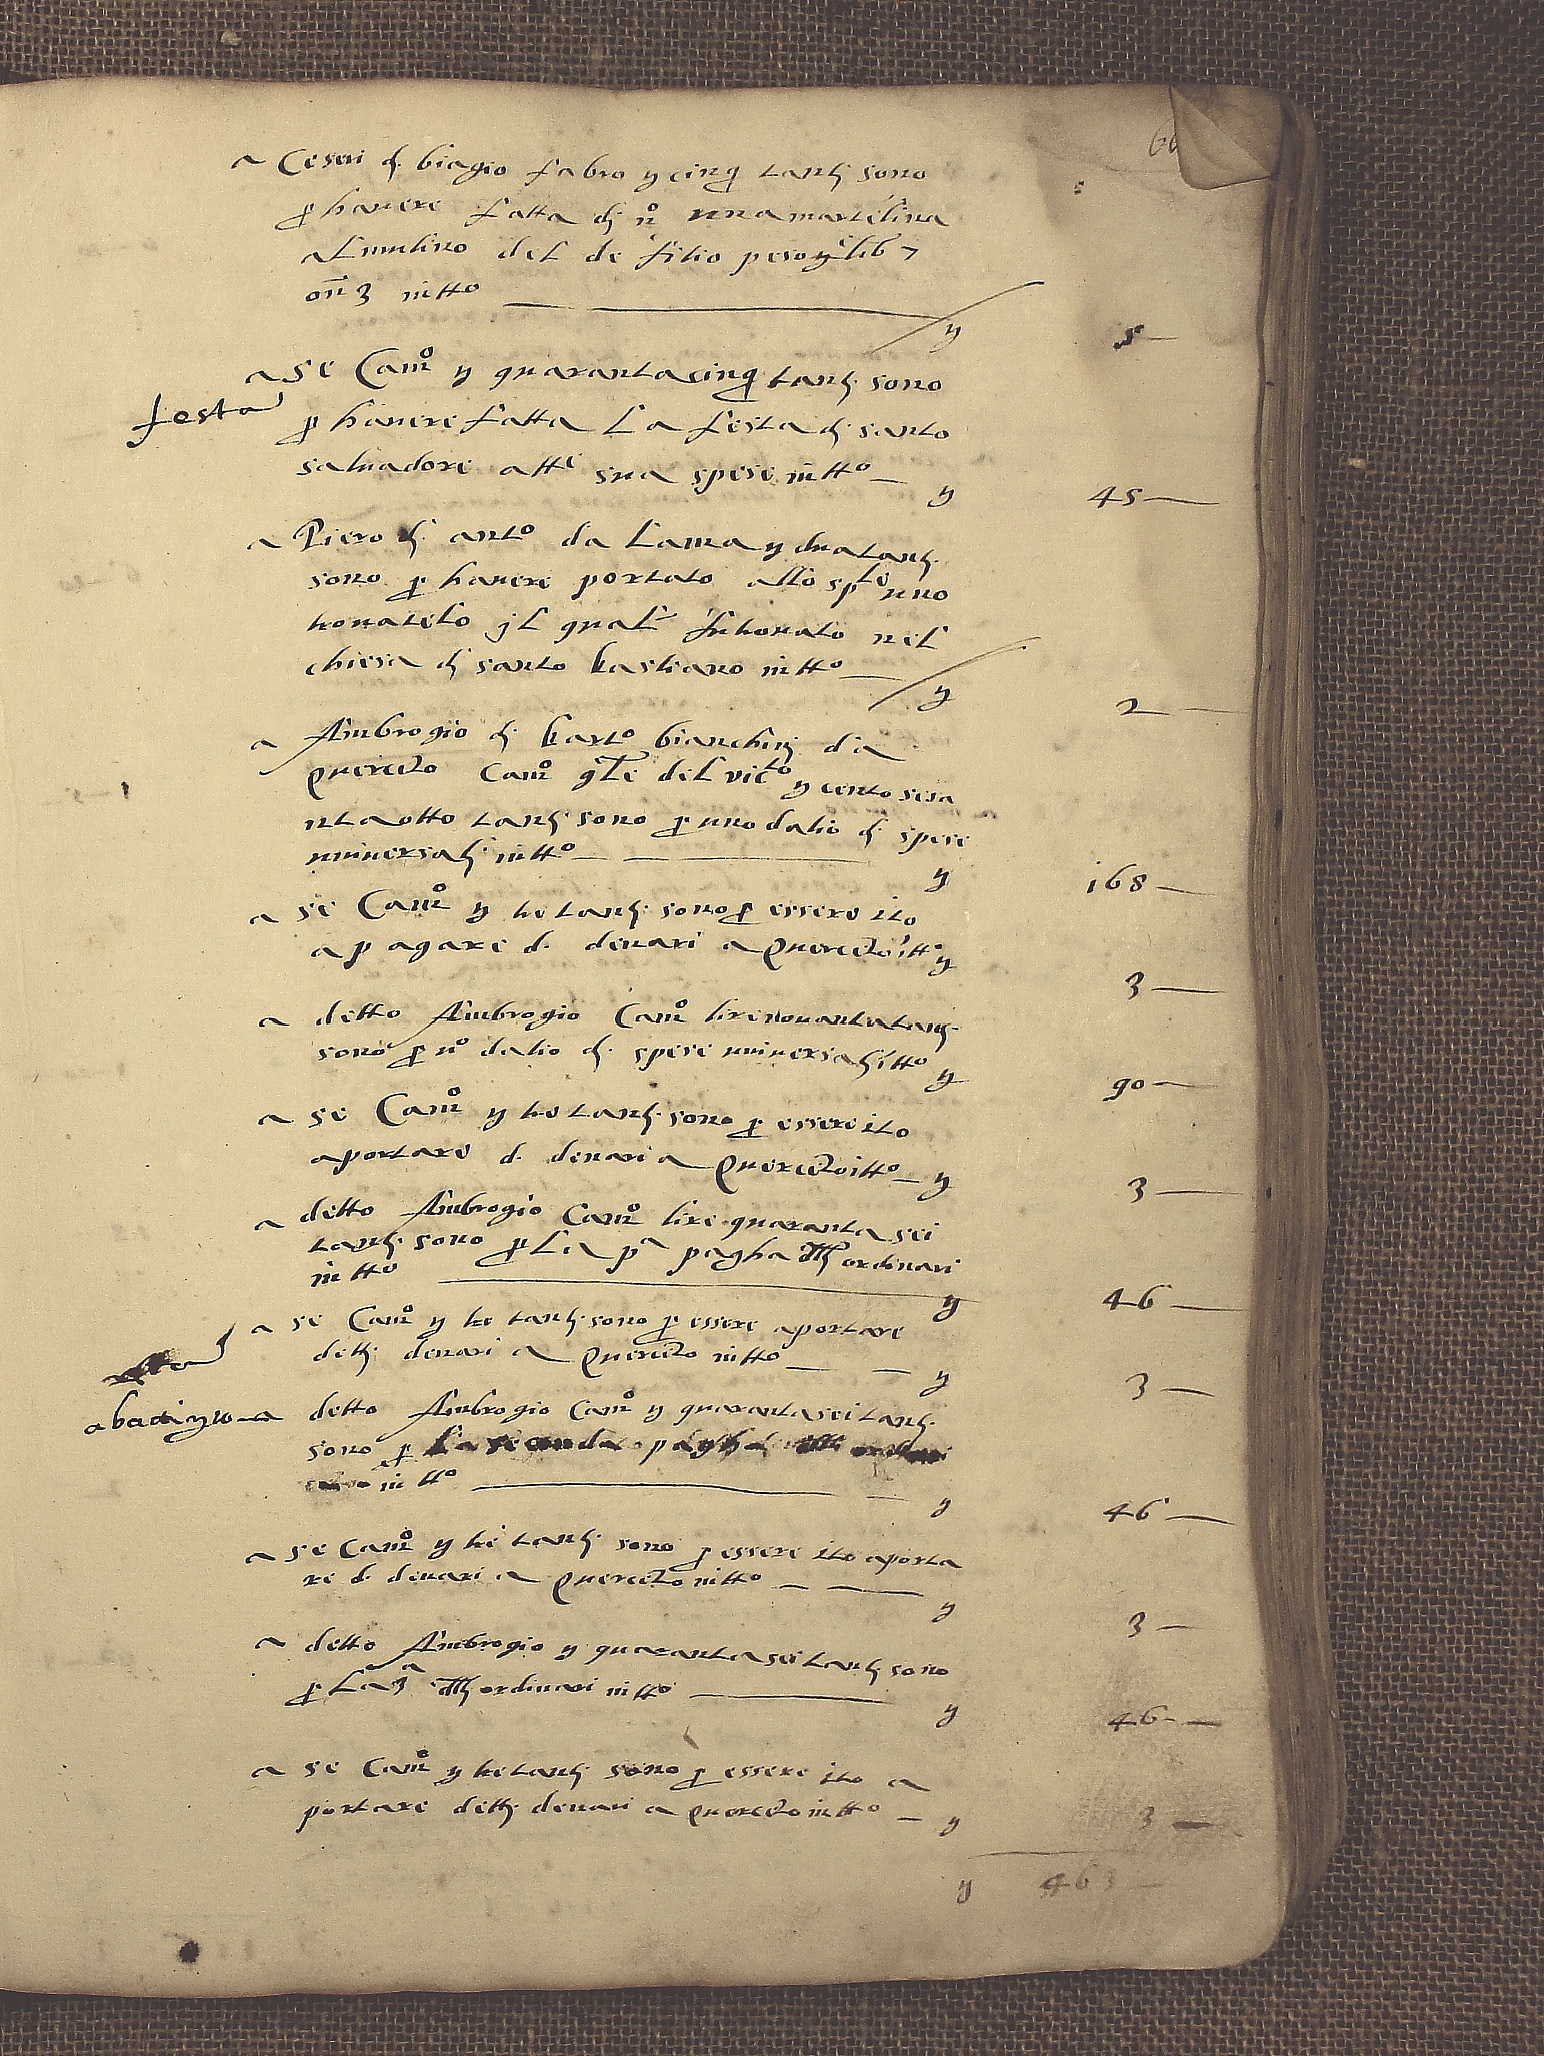 a Ceseri d. biagio fabro y cinq tanti sono
p havere fatta di no una martelina
al mulino del de sitio peso y lib 7
on 3 in tto y 5
a se Camo y quarantacinq tanti sono
festa
p havere fatta La festa di santo
salvadore atte sua spese in tto y 45
a Piero di anto da Lama y dua tanti
sono p havere portato allo sple uno
trovatelo jl quale fu trovato nel
chiesa di santo bastiano in tto y 2
a Ambrogio di barto bianchini da
Querceto Camo gle del victo y cento sesa
nta otto tanti sono p uno datio di spese
universali in tto y 168
a se Camo y tre tanti sono p essere ito
a pagare d. denari a Querceto itto y 3
a detto Ambrogio Camo lire novanta tanti
sono p no datio di spese universali itto y 90
a se Camo y tre tanti sono p essere ito
a portare d. denari a Querceto itto y 3
a detto Ambrogio Camo lire quaranta sei
tanti sono p La pa pagha ordinari
in tto y 46
a se Camo y tre tanti sono p essere aportare
detti denari a Querceto in tto y 3
a detto Ambrogio Camo y quarantasei tanti
sono p La seconda pagha ordinari
in tto y 46
a se Camo y tre tanti sono p essere ito aporta
re d. denari a Querceto in tto y 3
a detto Ambrogio y quarantasei tanti sono
p La 3a ordinari in tto y 46
a se Camo y tre tanti sono p essere ito a
portare detti denari a Querceto in tto y 3
y 463